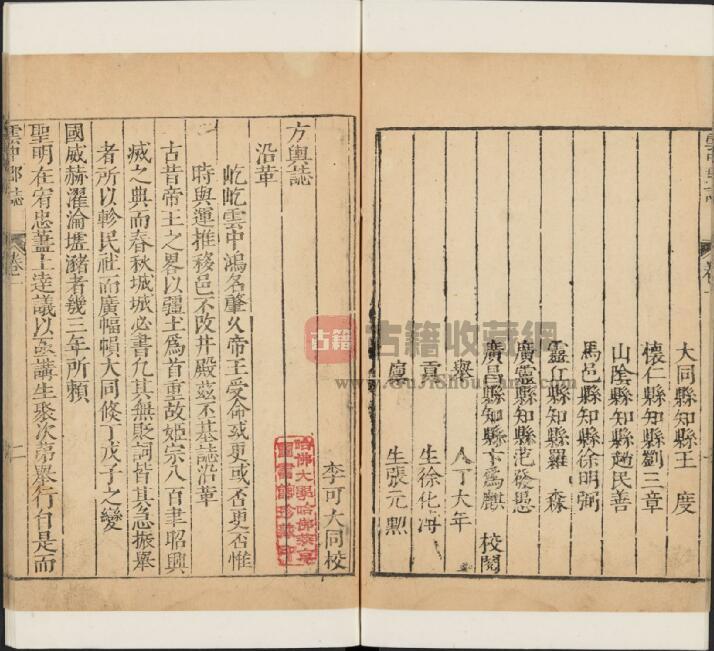 大同縣知縣王　度
懷仁縣知縣劉三章
山陰縣知縣趙民善
馬邑縣知縣徐明弼
靈丘縣知縣羅　森
廣靈縣知縣范發愚
廣昌縣知縣卞為麒　校閱
舉　人丁大年
貢　生徐化海
廩　生張元勲
李可大同校
方輿誌
沿革
屹屹雲中鴻名肇久帝王受命或更或否惟
時與運推移邑不改井殿茲丕基誌沿革
古昔帝王之畧以疆土為首重故姬宗八百聿昭興
滅之典而春秋城城必書凢其無貶詞皆其急振舉
者所以軫民社而廣幅幀大同俻丁戊子之變
國威赫濯淪壥瀦者幾三年所頼
聖明在宥忠藎上達議以
講生聚次苐舉行自是而
雲中郡誌
卷一
二
哈佛大學哈佛燕京
圖書館珍藏印
古籍
古籍收藏網
www.GujiShouCang.com